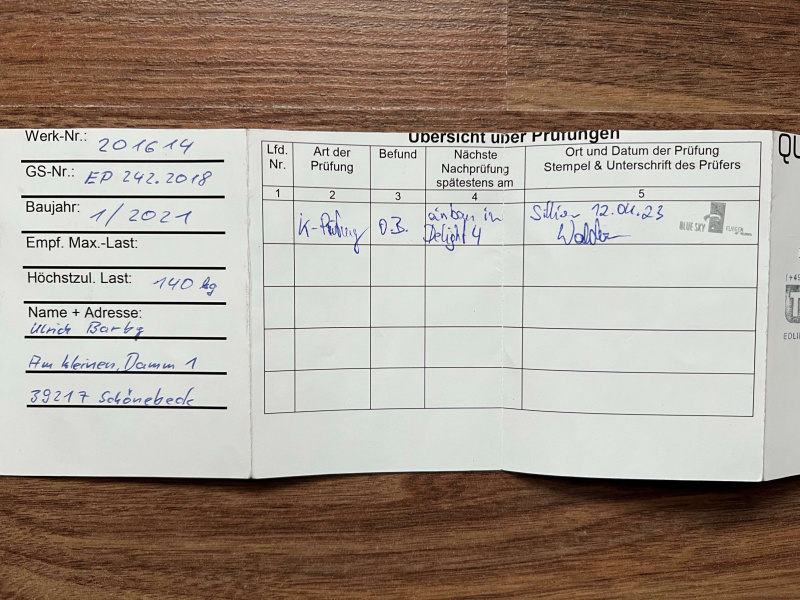 Werk-Nr.: 201614
GS-Nr.: EP 242.2018
Baujahr: 1/2021
Empf. Max.-Last:
Höchstzul. Last: 140 kg
Name + Adresse:
Ulrich Barby
Am kleinen Damm 1
39217 Schönebeck
Übersicht über Prüfungen
Lfd. Nr.
Art der Prüfung
Befund
Nächste Nachprüfung spätestens am
Ort und Datum der Prüfung
Stempel & Unterschrift des Prüfers
1 2 3 4 5
K-Prüfung
O.B.
einbau in
Delight 4
12.04.23
BLUE SKY
QU
(+49
EDLI